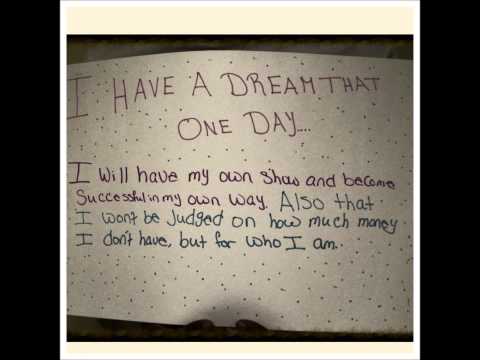 I HAVE A DREAM THAT
ONE DAY....
I will have my own shas and become
Successful in my own way. Also that
I wont be judged on how much money
I don't have, but for who I am.